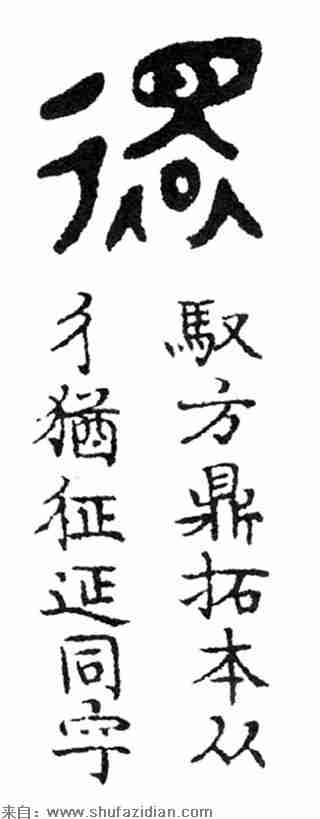 馭方鼎拓本从
彳猶征同字
来自：www.shufazidian.com